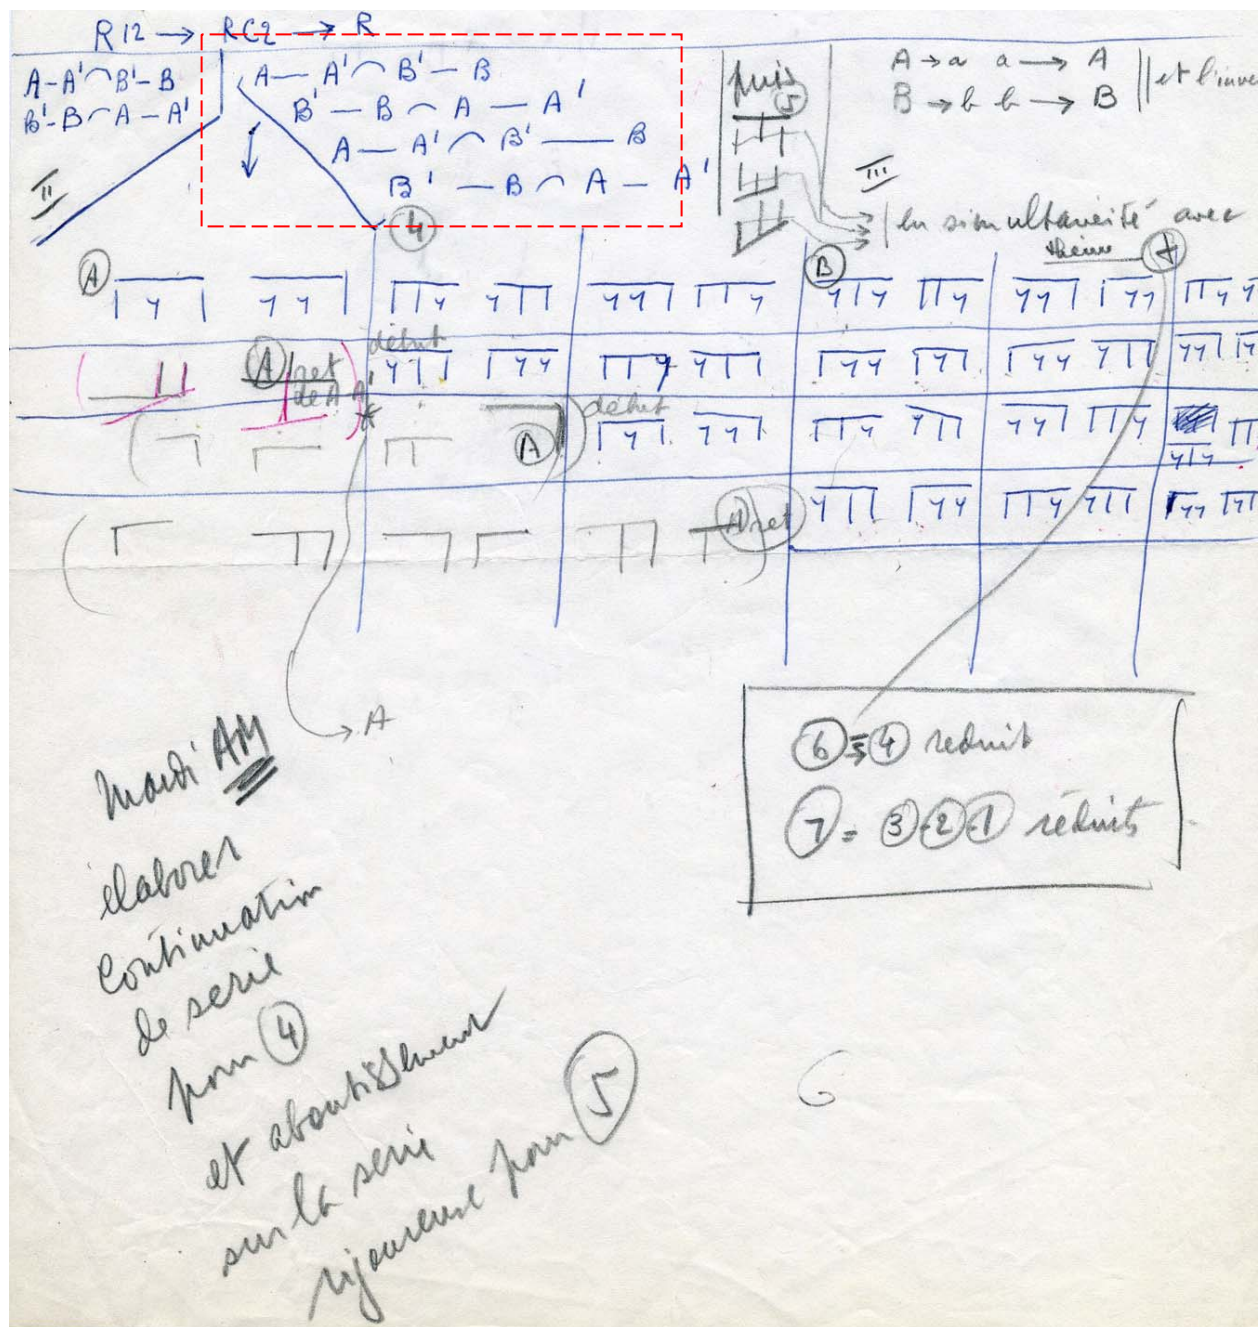 R12 → RC2 → R
A-A'⌒B'-B
B'-B⌒A-A'
II
A— A'⌒B'— B
B'— B⌒A — A'
A— A'⌒B'—— B
B'—B⌒A — A'
4
puis
5
A → a a → A
B → b b → B
et l'inve
III
en simultanéité avec
thème
A
B
début
A
ret
de A A'
début
A
A ret
→ A
6 = 4 reduit
7 = 3 2 1 réduits
Mardi AM
élaborer
continuation
de serie
pour 4
et aboutissement
sur la serie
rigoureuse pour 5
6